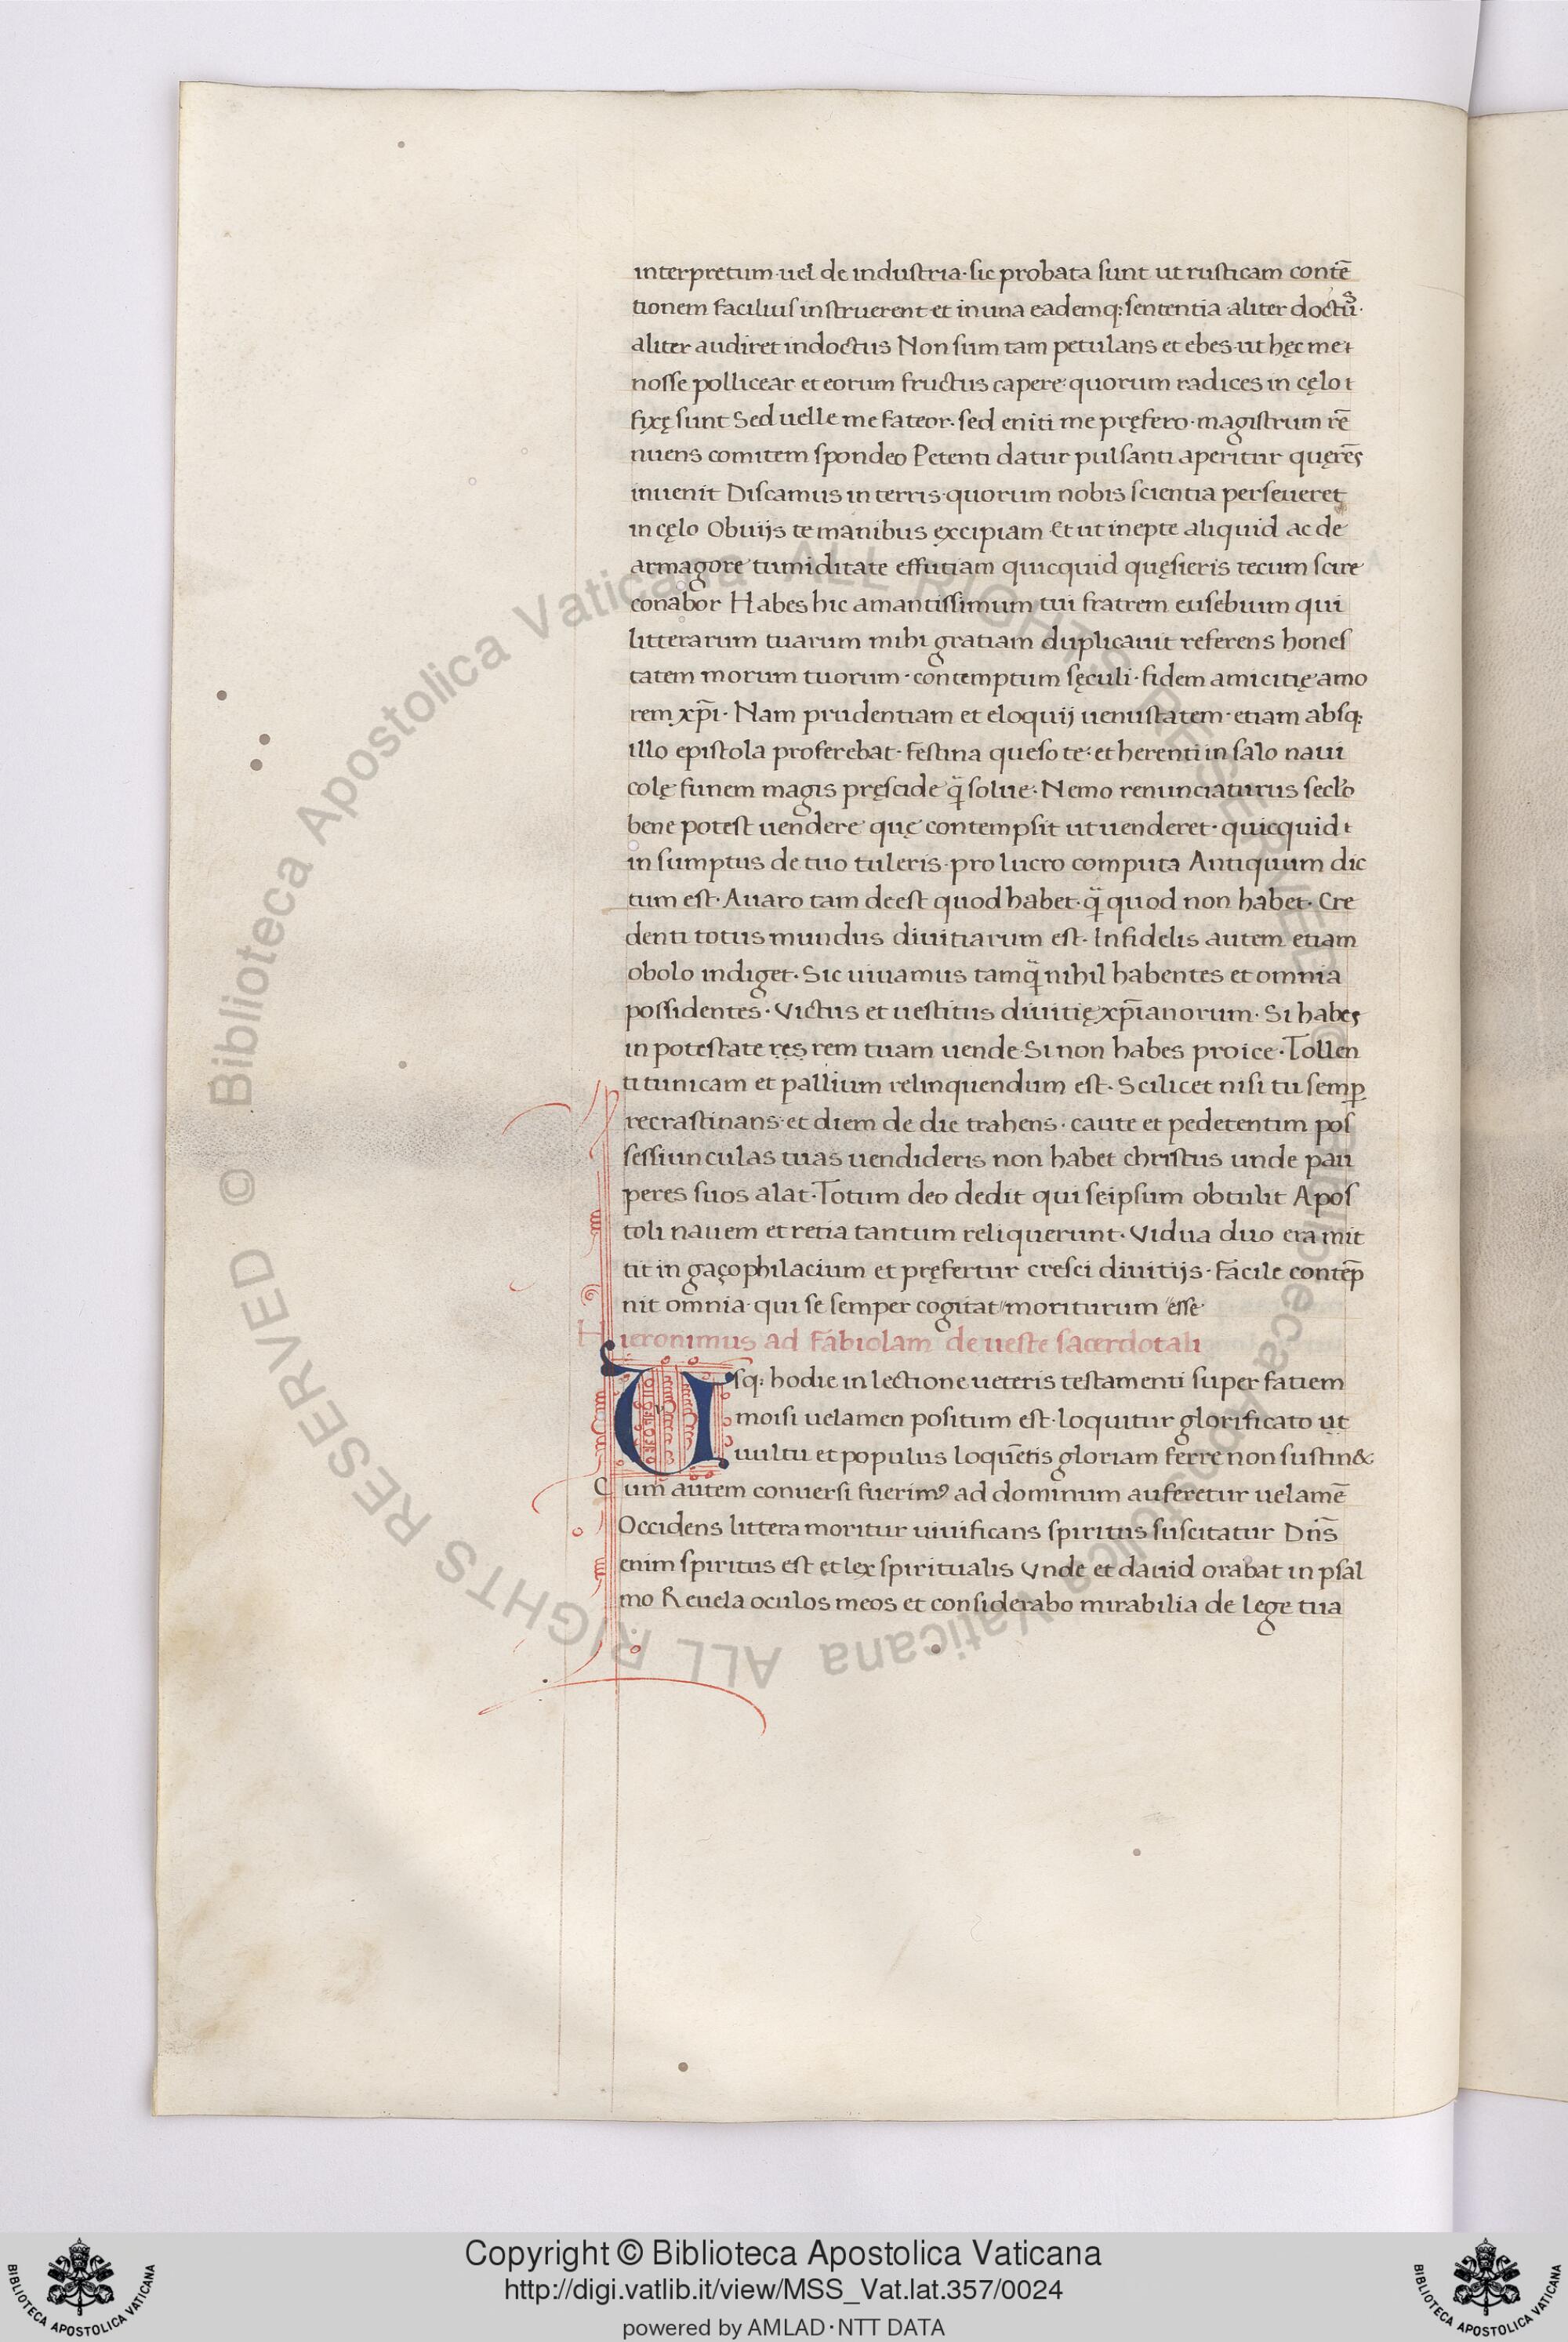 interpretum·uel de industria·sic probata sunt ut rusticam contē
tionem facilius instruerent·et in una eademq; sententia·aliter doctūs·
aliter audiret indoctus Non sum tam petulans et ebes·ut hęc me
nosse pollicear et eorum fructus capere·quorum radices in cęlo
fixę sunt Sed uelle me fateor·sed eniti me pręfero·magistrum rē
nuens comitem spondeo Petenti datur pulsanti aperitur quęrēs
inuenit Discamus in terris·quorum nobis scientia perseueret
in cęlo Obuijs te manibus excipiam Et ut inepte aliquid ac de
armagore tumiditate effutiam quicquid quęsieris tecum scire
conabor Habes hic amantissimum tui fratrem eusebium qui
litterarum tuarum mihi gratiam duplicauit referens hones
tatem morum tuorum·contemptum sęculi·fidem amicitię amo
rem xp̄i· Nam prudentiam et eloquij uenustatem·etiam absq;
illo epistola proferebat·Festina queso te·et herenti in salo naui
colę funem magis pręscide q̄ solue·Nemo renunciaturus seclo
bene potest uendere quę contempsit ut uenderet·quicquid
in sumptus de tuo tuleris·pro lucro computa Antiquum dic
tum est·Auaro tam deest quod habet·q̄ quod non habet·Cre
denti totus mundus diuitiarum est·Infidelis autem etiam
obolo indiget·Sic uiuamus tamq̄ nihil habentes et omnia
possidentes·Victus et uestitus diuitię xp̄ianorum·Si habes
in potestate res rem tuam uende Si non habes proice·Tollen
ti tunicam et pallium relinquendum est·Scilicet nisi tu semp̱
recrastinans·et diem de die trahens·caute et pedetentim pos
sessiunculas tuas uendideris non habet christus unde pau
peres suos alat·Totum deo dedit qui seipsum obtulit Apos
toli nauem et retia tantum reliquerunt·Vidua duo era mit
tit in gaçophilacium et pręfertur cresci diuitijs·Facile contēp
nit omnia·qui se semper cogitat moriturum esse
Hieronimus ad Fabiolam de ueste sacerdotali
Usq; hodie in lectione ueteris testamenti super fatiem
moisi uelamen positum est·loquitur glorificato ut
uultu et populus loquētis gloriam ferre non sustin&
Cum autem conuersi fuerimꝰ ad dominum auferetur uelamē
Occidens littera moritur uiuificans spiritus suscitatur Dn̄s
enim spiritus est et lex spiritualis Vnde et dauid orabat in psal
mo Reuela oculos meos et considerabo mirabilia de lege tua
© Biblioteca Apostolica Vaticana ALL RIGHTS RESERVED © Biblioteca Apostolica Vaticana ALL RIGHTS RESERVED
Copyright © Biblioteca Apostolica Vaticana
http://digi.vatlib.it/view/MSS_Vat.lat.357/0024
powered by AMLAD·NTT DATA
BIBLIOTECA APOSTOLICA VATICANA
BIBLIOTECA APOSTOLICA VATICANA